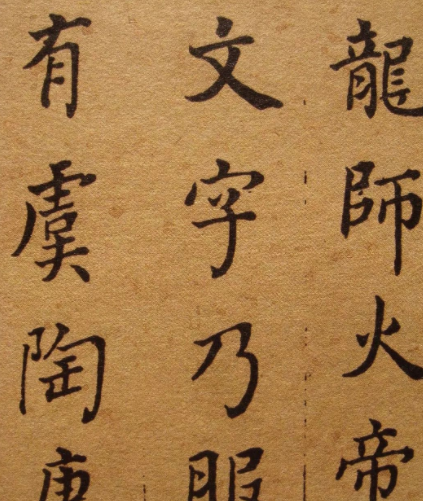 龍師火帝
文字乃服
有虞陶唐